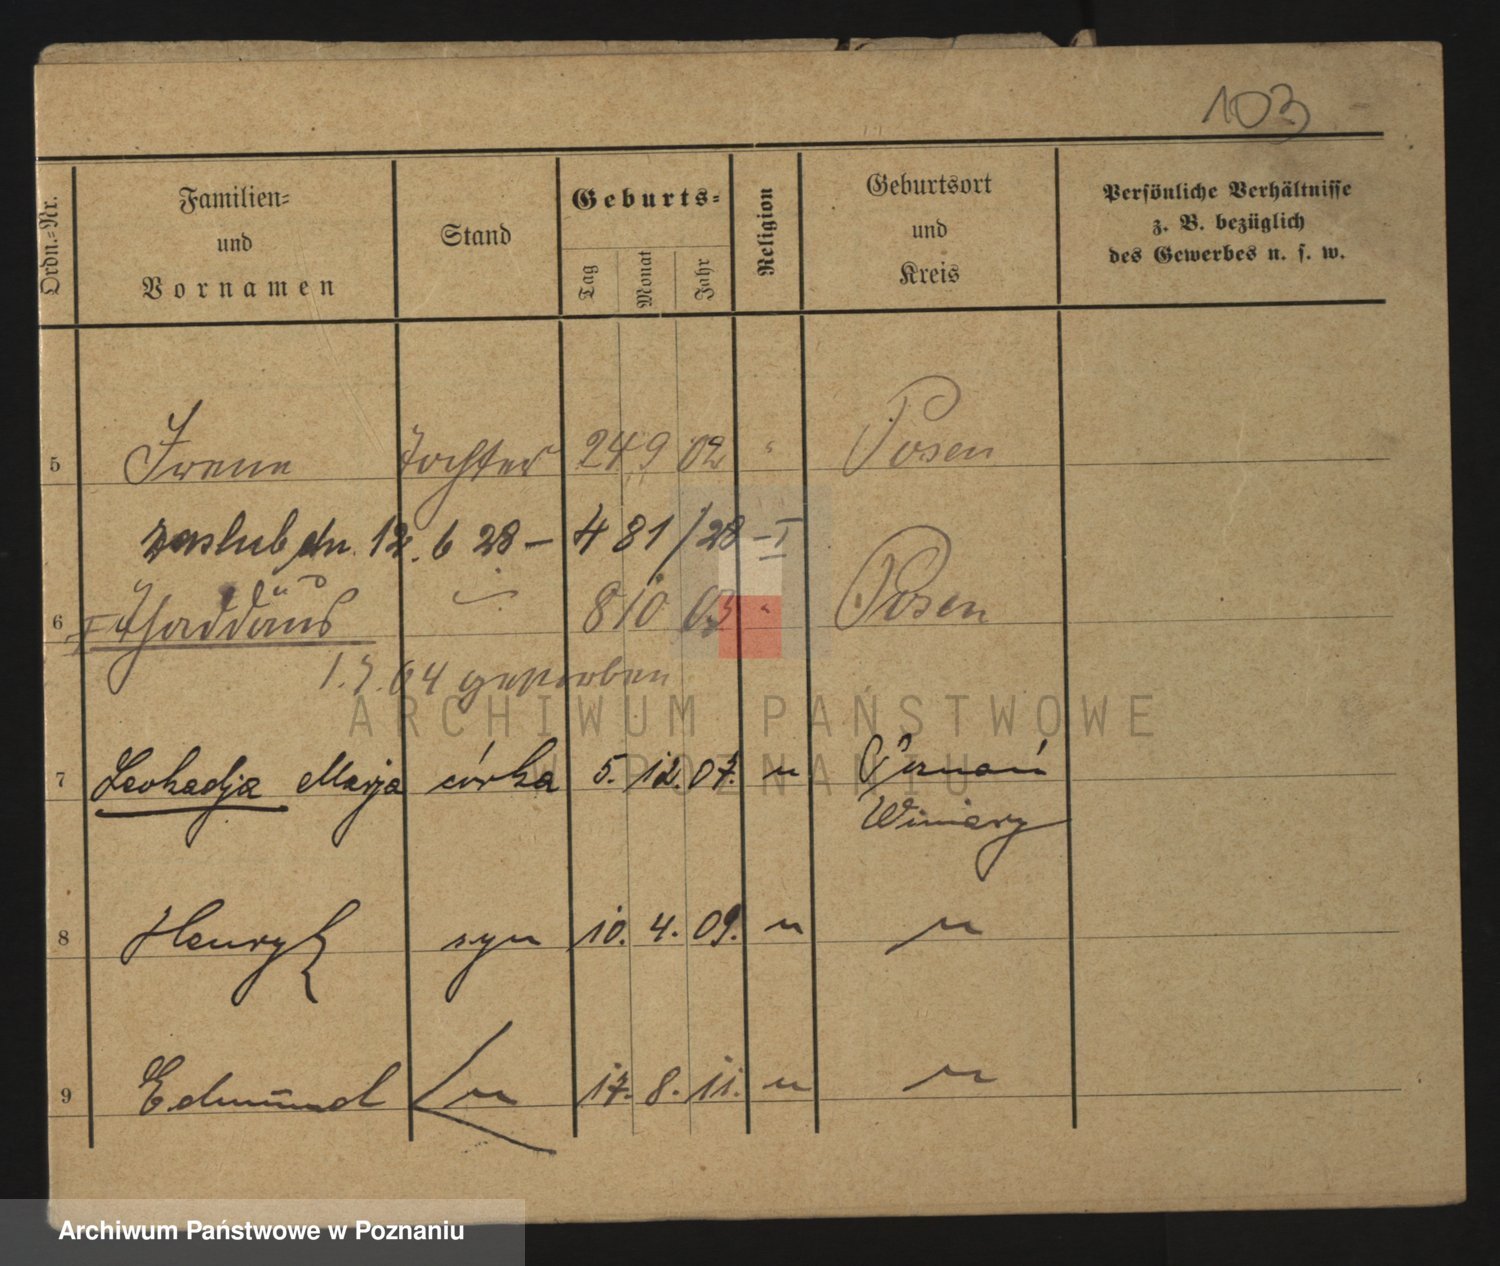 103
Ordn.-Nr.
Familien-
und
Vornamen
Stand
Geburts-
Tag
Monat
Jahr
Religion
Geburtsort
und
Kreis
Persönliche Verhältnisse
z. B. bezüglich
des Gewerbes u. s. w.
5 Irene Tochter 24 9 02 " Posen
zaślub dn. 12. 6 28 – 481/28 – I
6 Thaddäus " 8 10 03 " Posen
1.7.04 gestorben
7 Leokadja Marja córka 5. 12. 07. " Poznań
Winiary
8 Henryk syn 10. 4. 09. " "
9 Edmund " 17. 8. 11. " "
ARCHIWUM PAŃSTWOWE
W POZNANIU
Archiwum Państwowe w Poznaniu